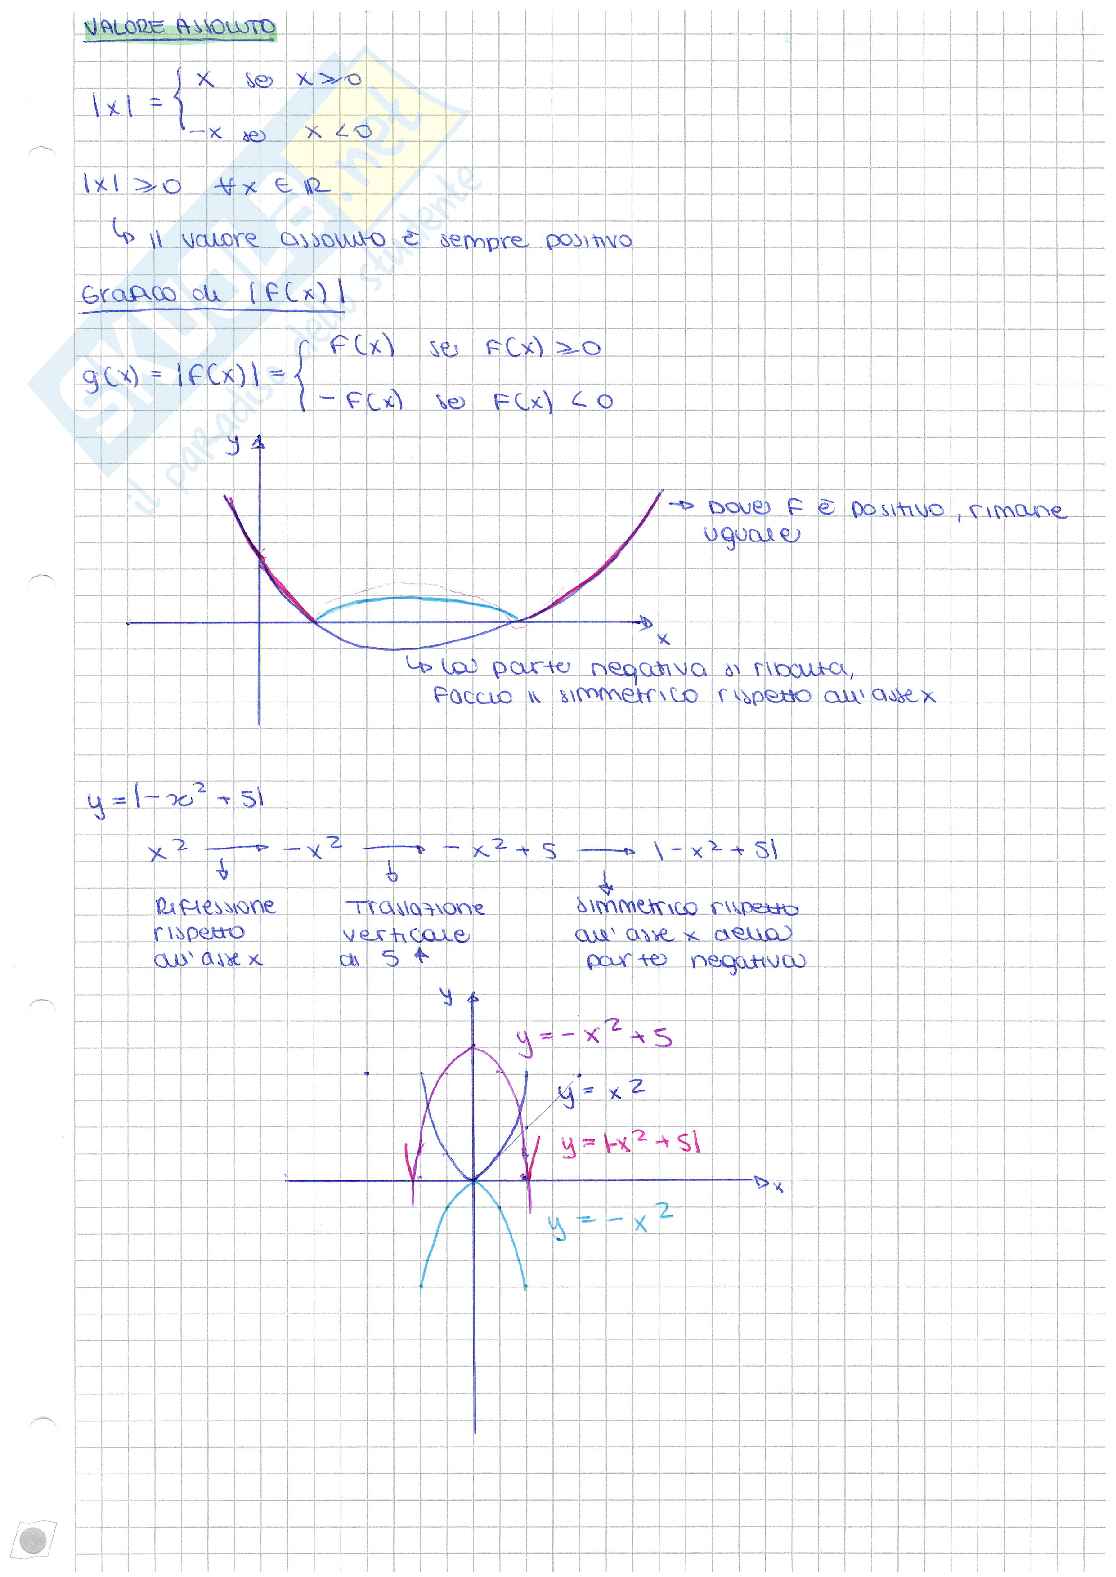 VALORE ASSOLUTO
|x| = { x se x ⩾ 0
-x se x < 0
|x| ⩾ 0 ∀x ∈ ℝ
↳ il valore assoluto è sempre positivo
Grafico di |F(x)|
g(x) = |F(x)| = { F(x) se F(x) ⩾ 0
- F(x) se F(x) < 0
y
→ Dove F è positivo, rimane
uguale
x
↳ la parte negativa si ribalta,
Faccio il simmetrico rispetto all'asse x
y = |-x² + 5|
x² → -x² → -x² + 5 → |-x² + 5|
Riflessione rispetto all'asse x
Traslazione verticale di 5 ↑
simmetrico rispetto all'asse x della parte negativa
y
y = -x² + 5
y = x²
y = |-x² + 5|
x
y = -x²
SKUOLA.net
il paradiso dello studente